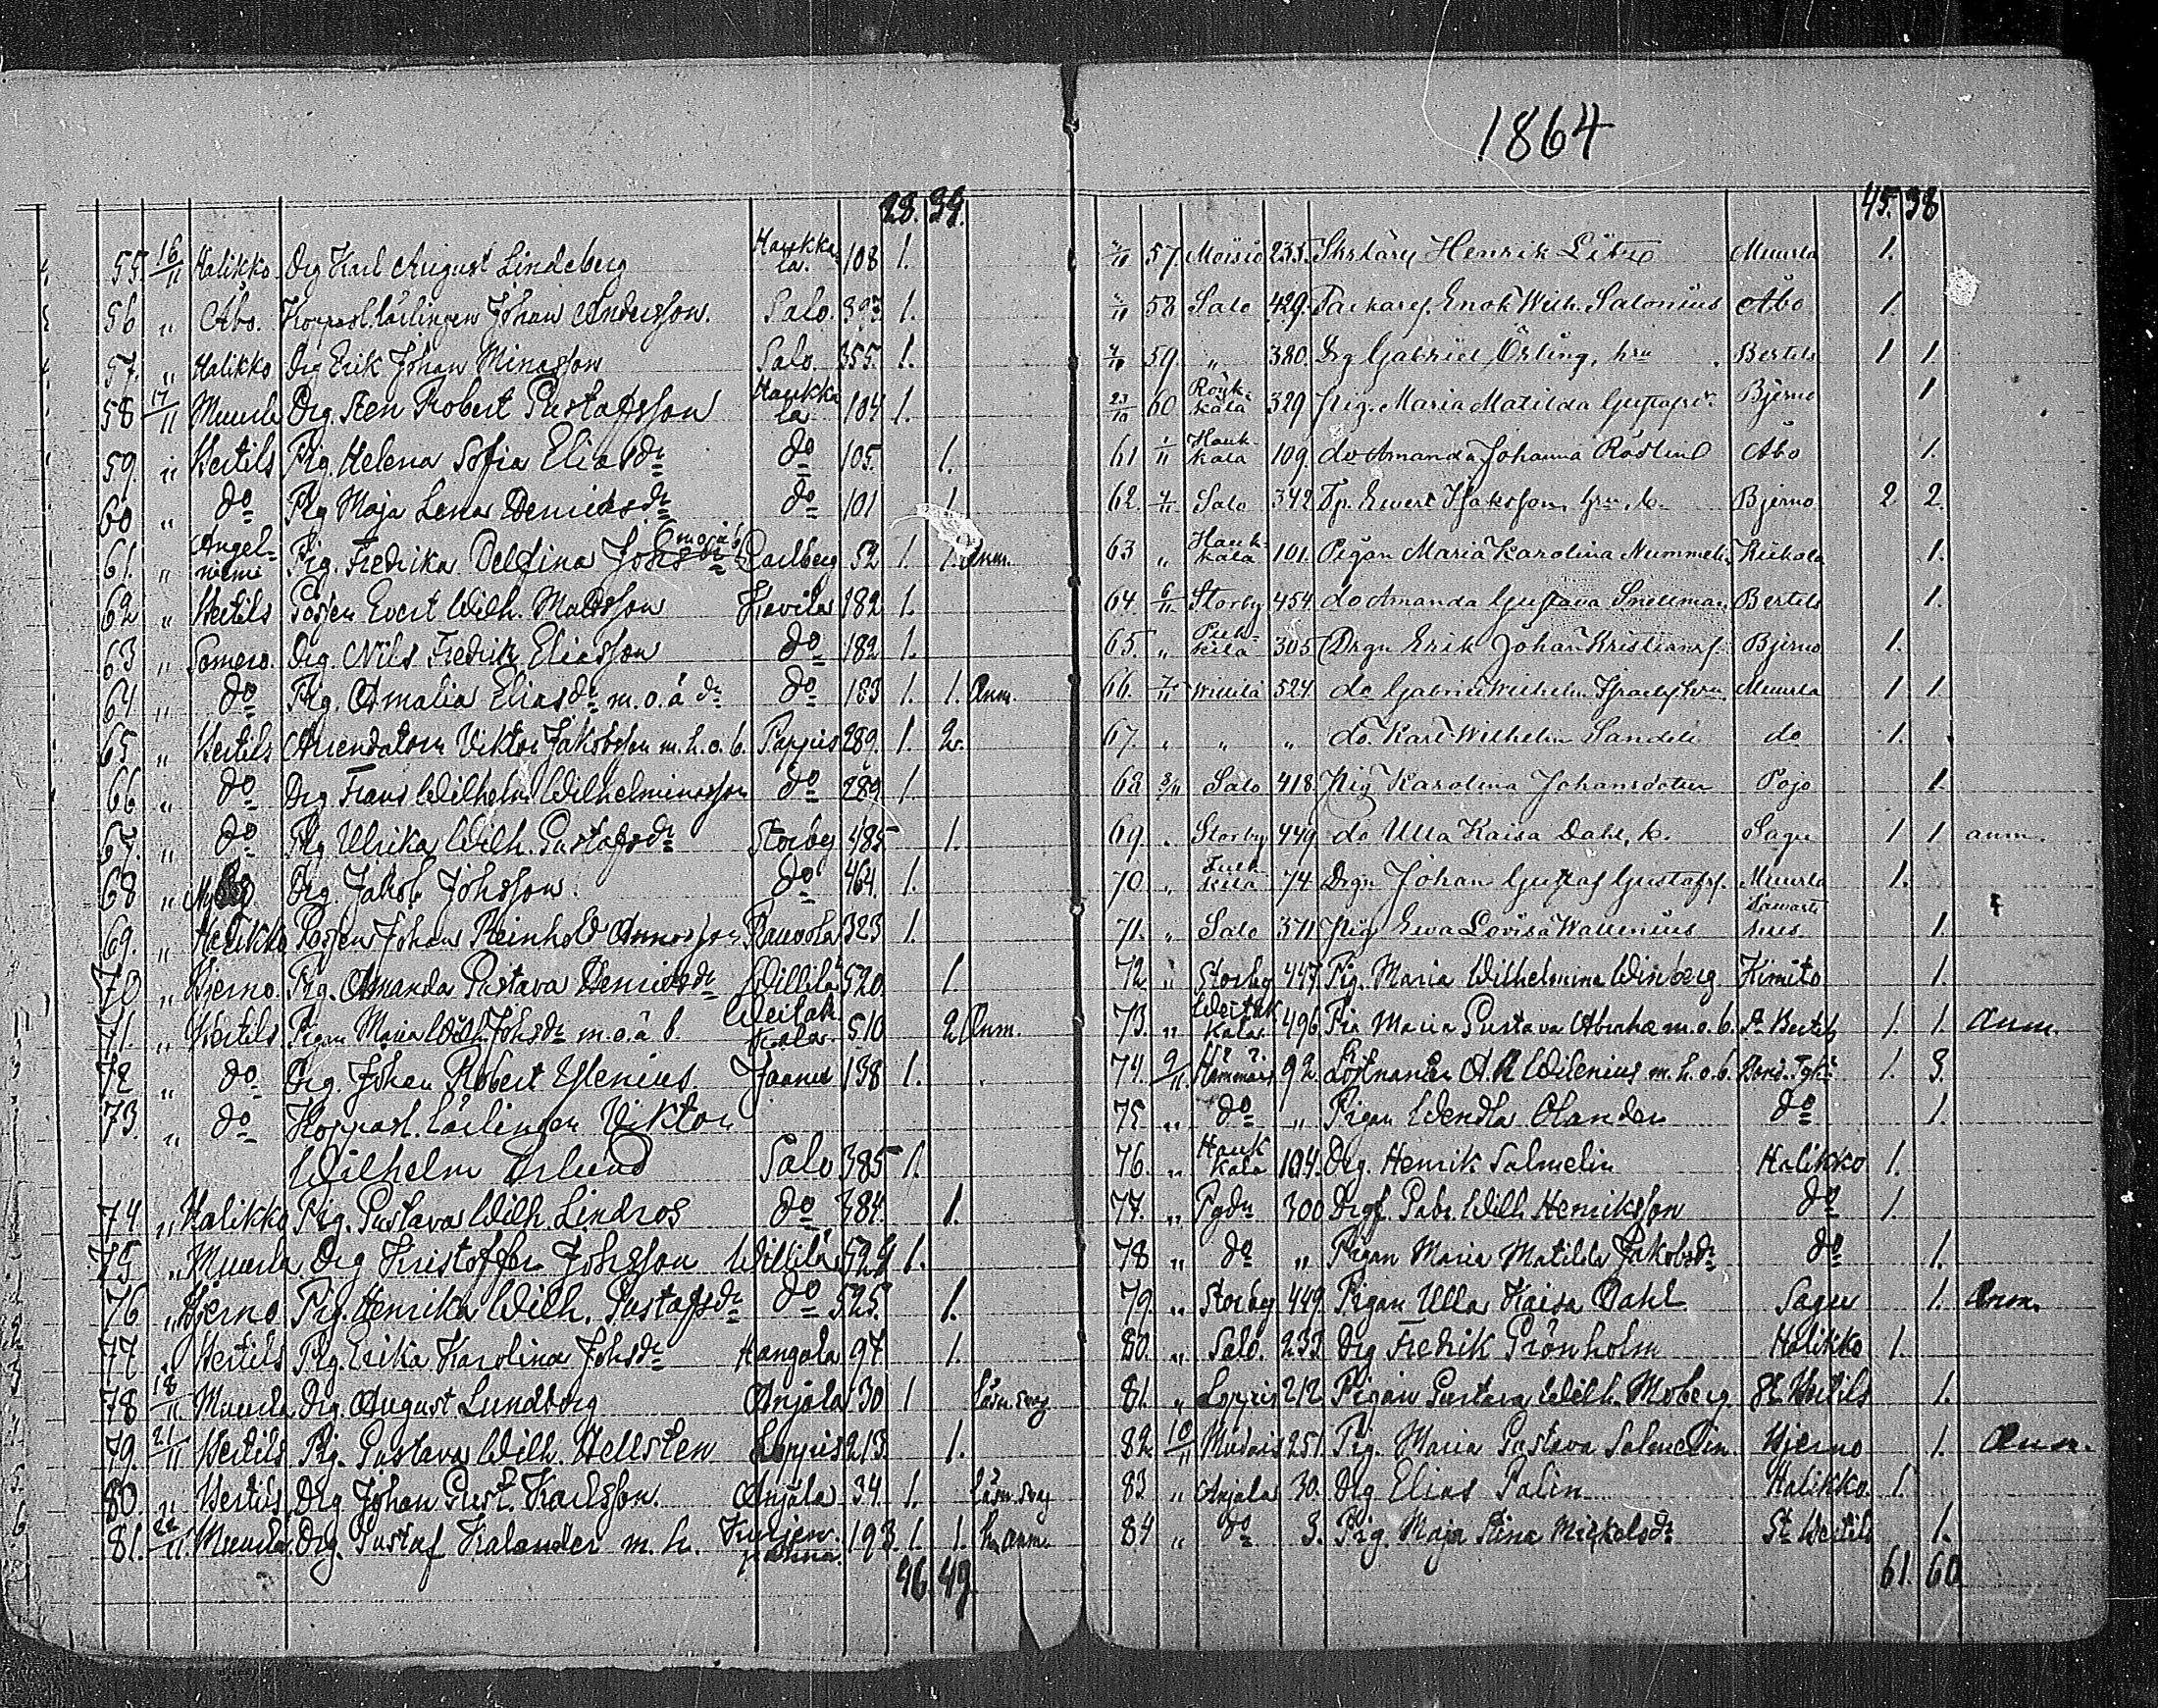 28. 34.
55. 16/11 Halikko. Drg Karl August Lindeberg Haukkala. 108 1.
56 " Åbo. Koppasl. lärlingen Johan Andersson. Salo. 393 1.
57. " Halikko Drg Erik Johan Minasson Salo. 355. 1.
58 17/11 Muurla Drg. Sten Robert Gustafsson Haukkala 104 1.
59. " Bertils Pig. Helena Sofia Eliasdr do 105. 1.
60 " do Pig Maja Lena Henriksdr do 101 1.
61. " Angelniemi Pig. Fredrika Delfina Johsdr m o ä b Carlberg 52 1. 1. Anm.
62 " Bertils Gossen Evert Wilh. Mattsson Kavila 182 1.
63 " Somero. Drg. Nils Fredrik Eliasson do 182 1.
64 " do Pig. Amalia Eliasdr m. o. ä dr do 183 1. 1. Anm.
65 " Bertils Arrendatorn Viktor Jakobsson m. h. o. b. Pappis 289. 1. 2.
66 " do Drg Frans Wilhelm Wilhelminasson do 289 1.
67. " do Pig Ulrika Wilh. Gustafsdr Storby 485 1.
68 " Drg. Jakob Johsson. do 464. 1.
69. " Halikko Gossen Johan Reinhold Annasson Rauvola 323 1.
70 " Bjerno. Pig. Amanda Gustava Henriksdr Willilä 520. 1.
71. " Bertils Pigan Maria Wilh. Johsdr m. o. ä b. Veitakkala. 510 2. Anm.
72 " do Drg. Johan Robert Ylenius. Joanne 138 1.
73. " do Koppasl. lärlingen Viktor
Wilhelm Erlund Salo 385 1.
74. " Halikko Pig. Gustava Wilh. Lindros do 384. 1.
75 " Muurla Drg Kristoffer Johsson Willilä 524 1.
76 " Bjerno Pig. Henrika Wilh. Gustafsdr do 525. 1.
77 " Bertils Pig. Erika Karolina Johsdr Hangala 97. 1.
78 18/11 Muurla Drg. August Lundborg Anjala 30 1 Läsn. svag
79. 21/11 Bertils Pig. Gustava Wilh. Hellsten Loppis 213. 1.
80. " Bertils Drg Johan Gust. Karlsson. Anjala 34. 1. Läsn. svag
81. 22/11 Muurla. Drg. Gustaf Kalander m. h. Kurjenpahna. 193. 1. 1. Anm.
46. 49.
1864
45. 38
57. Moisio 235. Henrik Muurla 1.
58 Salo 429. Enok Wilh. Salonius Åbo 1.
59. " 380. Drg Gabriel Örling, hru Bertils 1 1.
23/10 60 329 Pig. Maria Matilda Gustafsdr. Bjerno 1.
61 1/11 Haukkala 109. do Amanda Johanna Roslin Åbo 1.
62. 4/11 Salo 342 Tp. Evert Isaksson, hru, b. Bjerno 2 2.
63 " Haukkala 101. Pigan Maria Karolina Nummelin Kiikala 1.
64. 6/11 Storby 454. do Amanda Gustava Snellman Bertils 1.
65. " 305 Drgn Erik Johan Kristianss. Bjerno 1.
66. 7/11 Willilä 524. do Gabriel Wilhelm hru Muurla 1 1.
67. " " " do. Karl Wilhelm Sandell do 1.
68 8/11 Salo 418. Pig Karolina Johansdotter Pojo 1.
69. " Storby 449 do Ulla Kaisa Dahl, b. Sagu 1 1 anm.
70 " 74. Drgn Johan Gustaf Gustafss. Muurla 1.
71. " Salo 371 Pig Ewa Lovisa Wallenius Tawastehus. 1.
72. " Storby 447. Pig. Maria Wilhelmina Winberg Kimito 1.
73. " Weitakkala. 496. Pig Maria Gustava Abrahe m. o. b. St Bertils 1. 1. Anm.
74. 9/11 92. Löjtnanten A R Wilenius m. h. o. b. 1. 3.
75 " do " Pigan Wendla Olander do 1.
76. " Haukkala 104. Drg. Henrik Salmelin Halikko 1.
77. " Pgdn 300 Drgf. Gabr. Wilh. Henriksson do 1.
78 " do " Pigan Maria Matilda Jakobsdr do 1.
79. " Storby 449. Pigan Ulla Kaisa Dahl Sagu 1. Anm.
80. " Salo. 233 Drg Fredrik Grönholm Halikko 1.
81. " Loppis 212. Pigan Gustava Wilh. Moberg. St Bertils 1.
82. 10/11 251. Pig. Maria Gustava Salmelin. Bjerno 1. Anm.
83 " Anjala 30. Drg Elias Palin Halikko. 1.
84 " do 3. Pig. Maja Stina Mickelsdr St Bertils 1.
61. 60